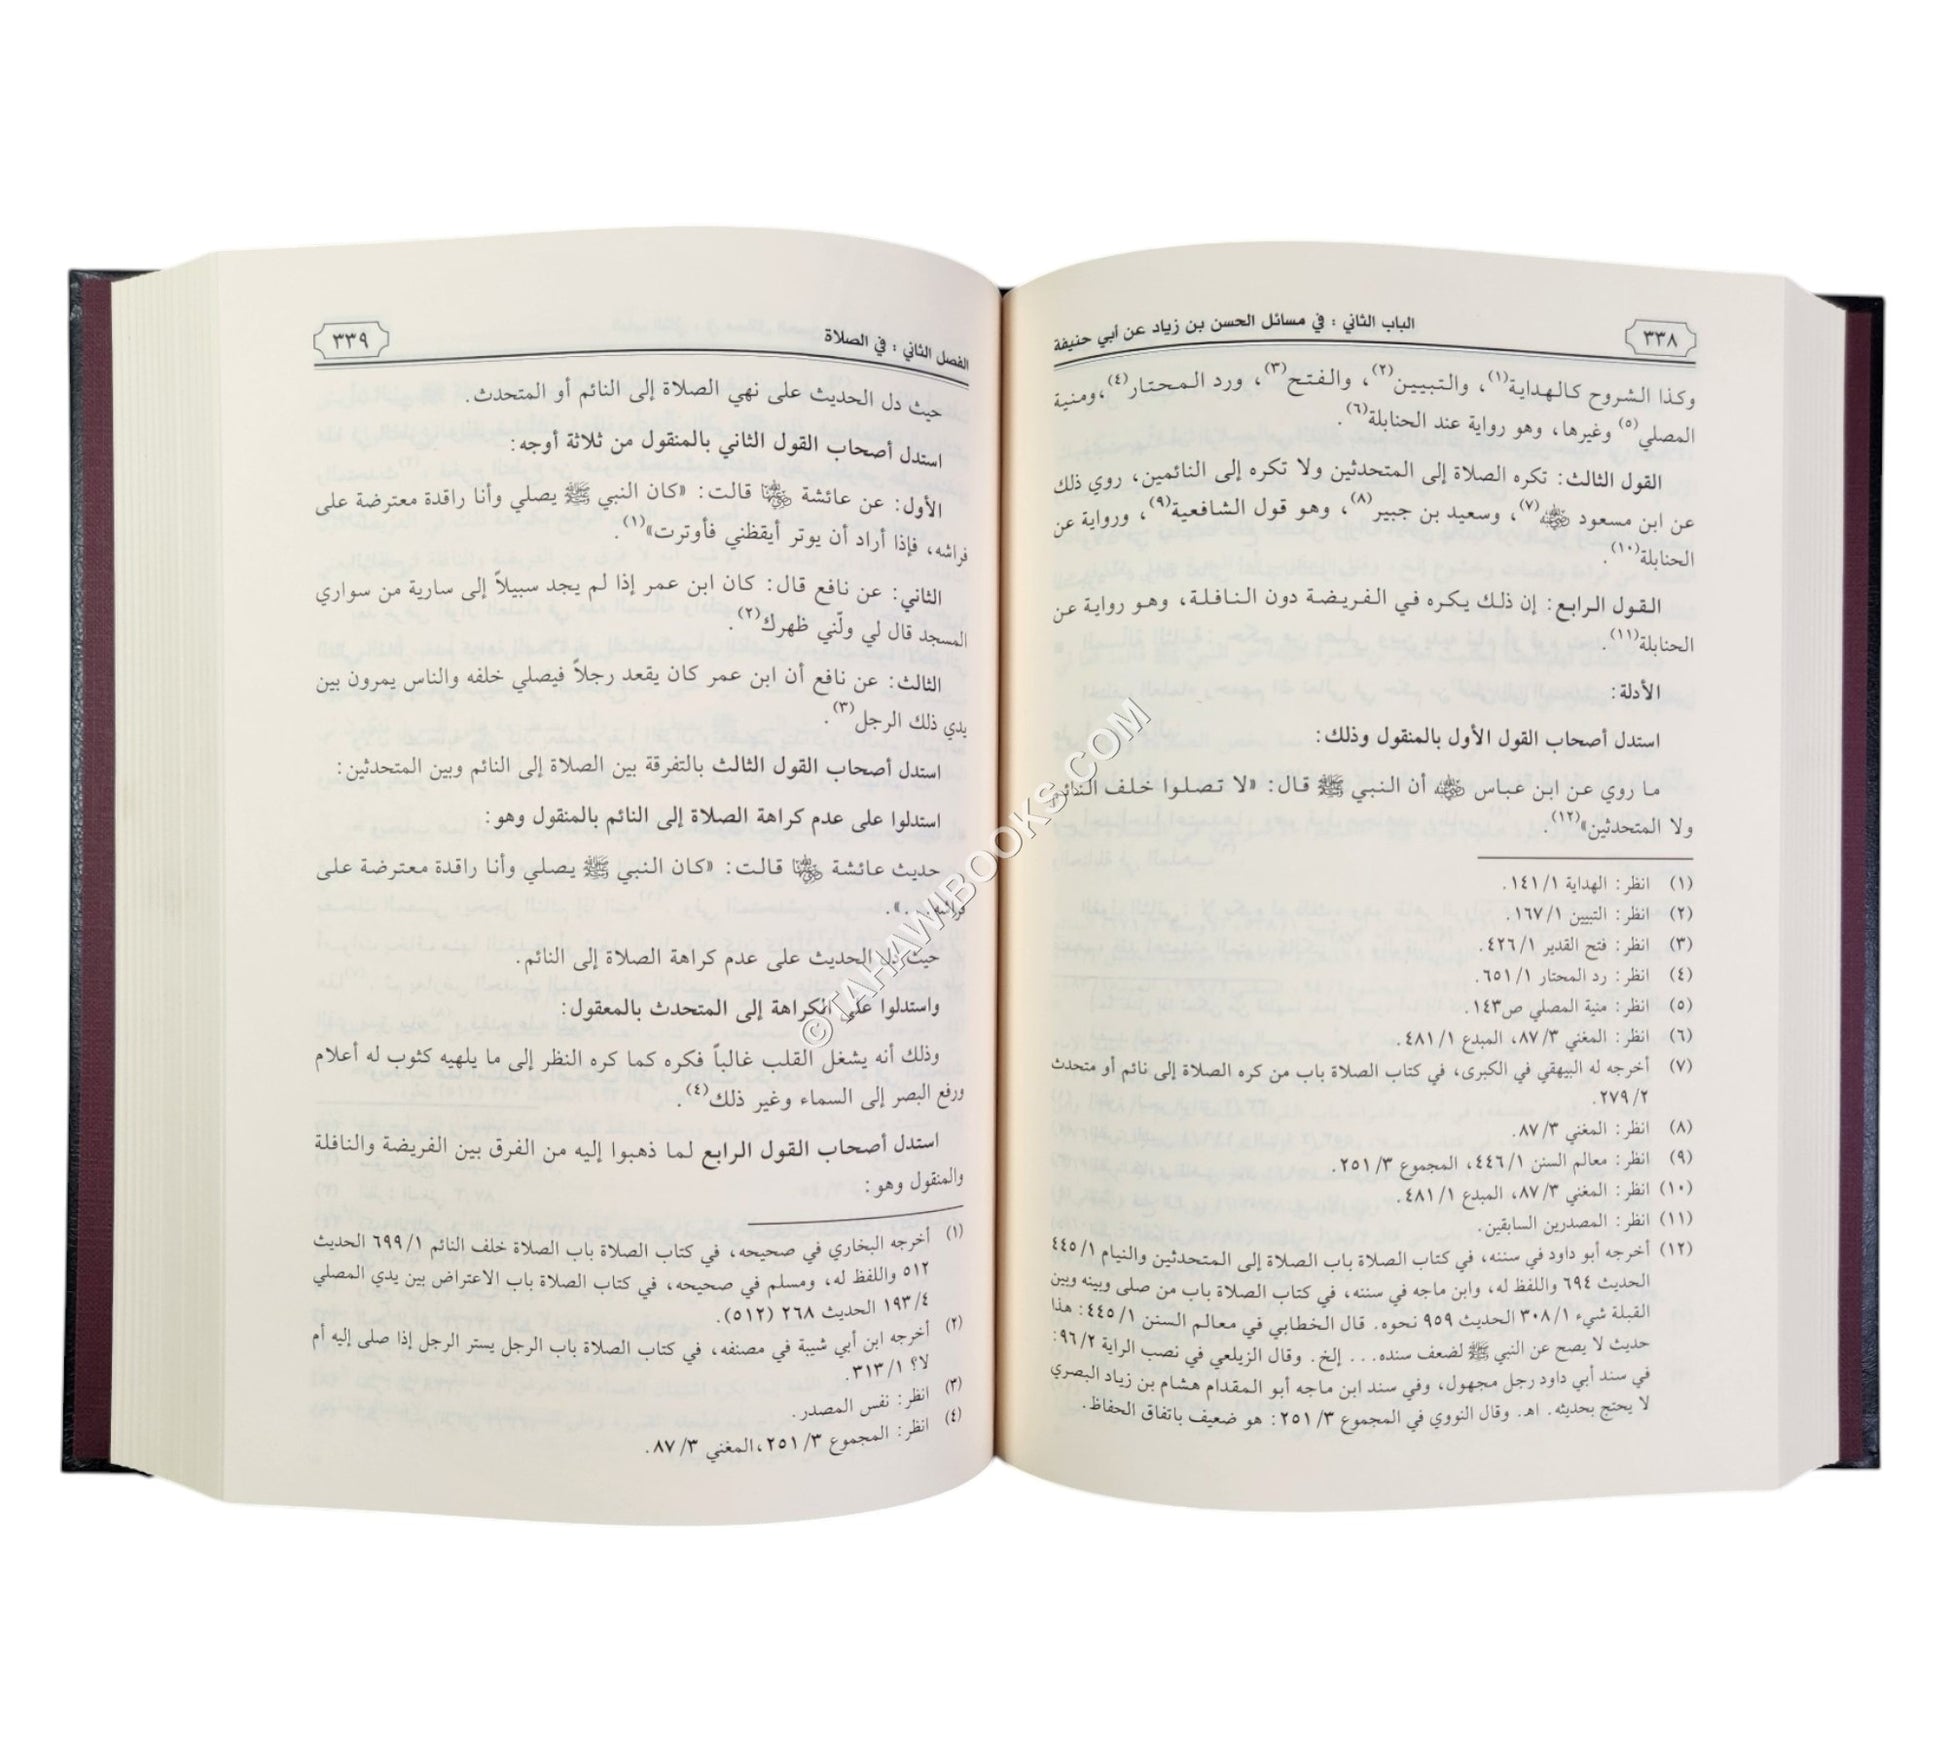 ٣٣٨
الباب الثاني: في مسائل الحسن بن زياد عن أبي حنيفة
وكذا الشروح كالهداية(١)، والتبيين(٢)، والفتح(٣)، ورد المحتار(٤)، ومنية
المصلي(٥) وغيرها، وهو رواية عند الحنابلة(٦).
القول الثالث: تكره الصلاة إلى المتحدثين ولا تكره إلى النائمين، روي ذلك
عن ابن مسعود رضي الله عنه(٧)، وسعيد بن جبير(٨)، وهو قول الشافعية(٩)، ورواية عن
الحنابلة(١٠).
القول الرابع: إن ذلك يكره في الفريضة دون النافلة، وهو رواية عن
الحنابلة(١١).
الأدلة:
استدل أصحاب القول الأول بالمنقول وذلك:
ما روي عن ابن عباس رضي الله عنهما أن النبي ﷺ قال: «لا تصلوا خلف النائم
ولا المتحدثين»(١٢).
(١) انظر: الهداية ١/ ١٤١.
(٢) انظر: التبيين ١/ ١٦٧.
(٣) انظر: فتح القدير ١/ ٤٢٦.
(٤) انظر: رد المحتار ١/ ٦٥١.
(٥) انظر: منية المصلي ص١٤٣.
(٦) انظر: المغني ٣/ ٨٧، المبدع ١/ ٤٨١.
(٧) أخرجه له البيهقي في الكبرى، في كتاب الصلاة باب من كره الصلاة إلى نائم أو متحدث
٢/ ٢٧٩.
(٨) انظر: المغني ٣/ ٨٧.
(٩) انظر: معالم السنن ١/ ٤٤٦، المجموع ٣/ ٢٥١.
(١٠) انظر: المغني ٣/ ٨٧، المبدع ١/ ٤٨١.
(١١) انظر: المصدرين السابقين.
(١٢) أخرجه أبو داود في سننه، في كتاب الصلاة باب الصلاة إلى المتحدثين والنيام ١/ ٤٤٥
الحديث ٦٩٤ واللفظ له، وابن ماجه في سننه، في كتاب الصلاة باب من صلى وبينه وبين
القبلة شيء ١/ ٣٠٨ الحديث ٩٥٩ نحوه. قال الخطابي في معالم السنن ١/ ٤٤٥: هذا
حديث لا يصح عن النبي ﷺ لضعف سنده... إلخ. وقال الزيلعي في نصب الراية ٢/ ٩٦:
في سند أبي داود رجل مجهول، وفي سند ابن ماجه أبو المقدام هشام بن زياد البصري
لا يحتج بحديثه. اهـ. وقال النووي في المجموع ٣/ ٢٥١: هو ضعيف باتفاق الحفاظ.
الفصل الثاني: في الصلاة
٣٣٩
حيث دل الحديث على نهي الصلاة إلى النائم أو المتحدث.
استدل أصحاب القول الثاني بالمنقول من ثلاثة أوجه:
الأول: عن عائشة رضي الله عنها قالت: «كان النبي ﷺ يصلي وأنا راقدة معترضة على
فراشه، فإذا أراد أن يوتر أيقظني فأوترت»(١).
الثاني: عن نافع قال: كان ابن عمر إذا لم يجد سبيلاً إلى سارية من سواري
المسجد قال لي ولّني ظهرك(٢).
الثالث: عن نافع أن ابن عمر كان يقعد رجلاً فيصلي خلفه والناس يمرون بين
يدي ذلك الرجل(٣).
استدل أصحاب القول الثالث بالتفرقة بين الصلاة إلى النائم وبين المتحدثين:
استدلوا على عدم كراهة الصلاة إلى النائم بالمنقول وهو:
حديث عائشة رضي الله عنها قالت: «كان النبي ﷺ يصلي وأنا راقدة معترضة على
فراشه...».
حيث دل الحديث على عدم كراهة الصلاة إلى النائم.
واستدلوا على الكراهة إلى المتحدث بالمعقول:
وذلك أنه يشغل القلب غالباً فكره كما كره النظر إلى ما يلهيه كثوب له أعلام
ورفع البصر إلى السماء وغير ذلك(٤).
استدل أصحاب القول الرابع لما ذهبوا إليه من الفرق بين الفريضة والنافلة
والمنقول وهو:
(١) أخرجه البخاري في صحيحه، في كتاب الصلاة باب الصلاة خلف النائم ١/ ٦٩٩ الحديث
٥١٢ واللفظ له، ومسلم في صحيحه، في كتاب الصلاة باب الاعتراض بين يدي المصلي
٤/ ١٩٣ الحديث ٢٦٨ (٥١٢).
(٢) أخرجه ابن أبي شيبة في مصنفه، في كتاب الصلاة باب الرجل يستر الرجل إذا صلى إليه أم
لا؟ ١/ ٣١٣.
(٣) انظر: نفس المصدر.
(٤) انظر: المجموع ٣/ ٢٥١، المغني ٣/ ٨٧.
©TAHAWIBOOKS.COM